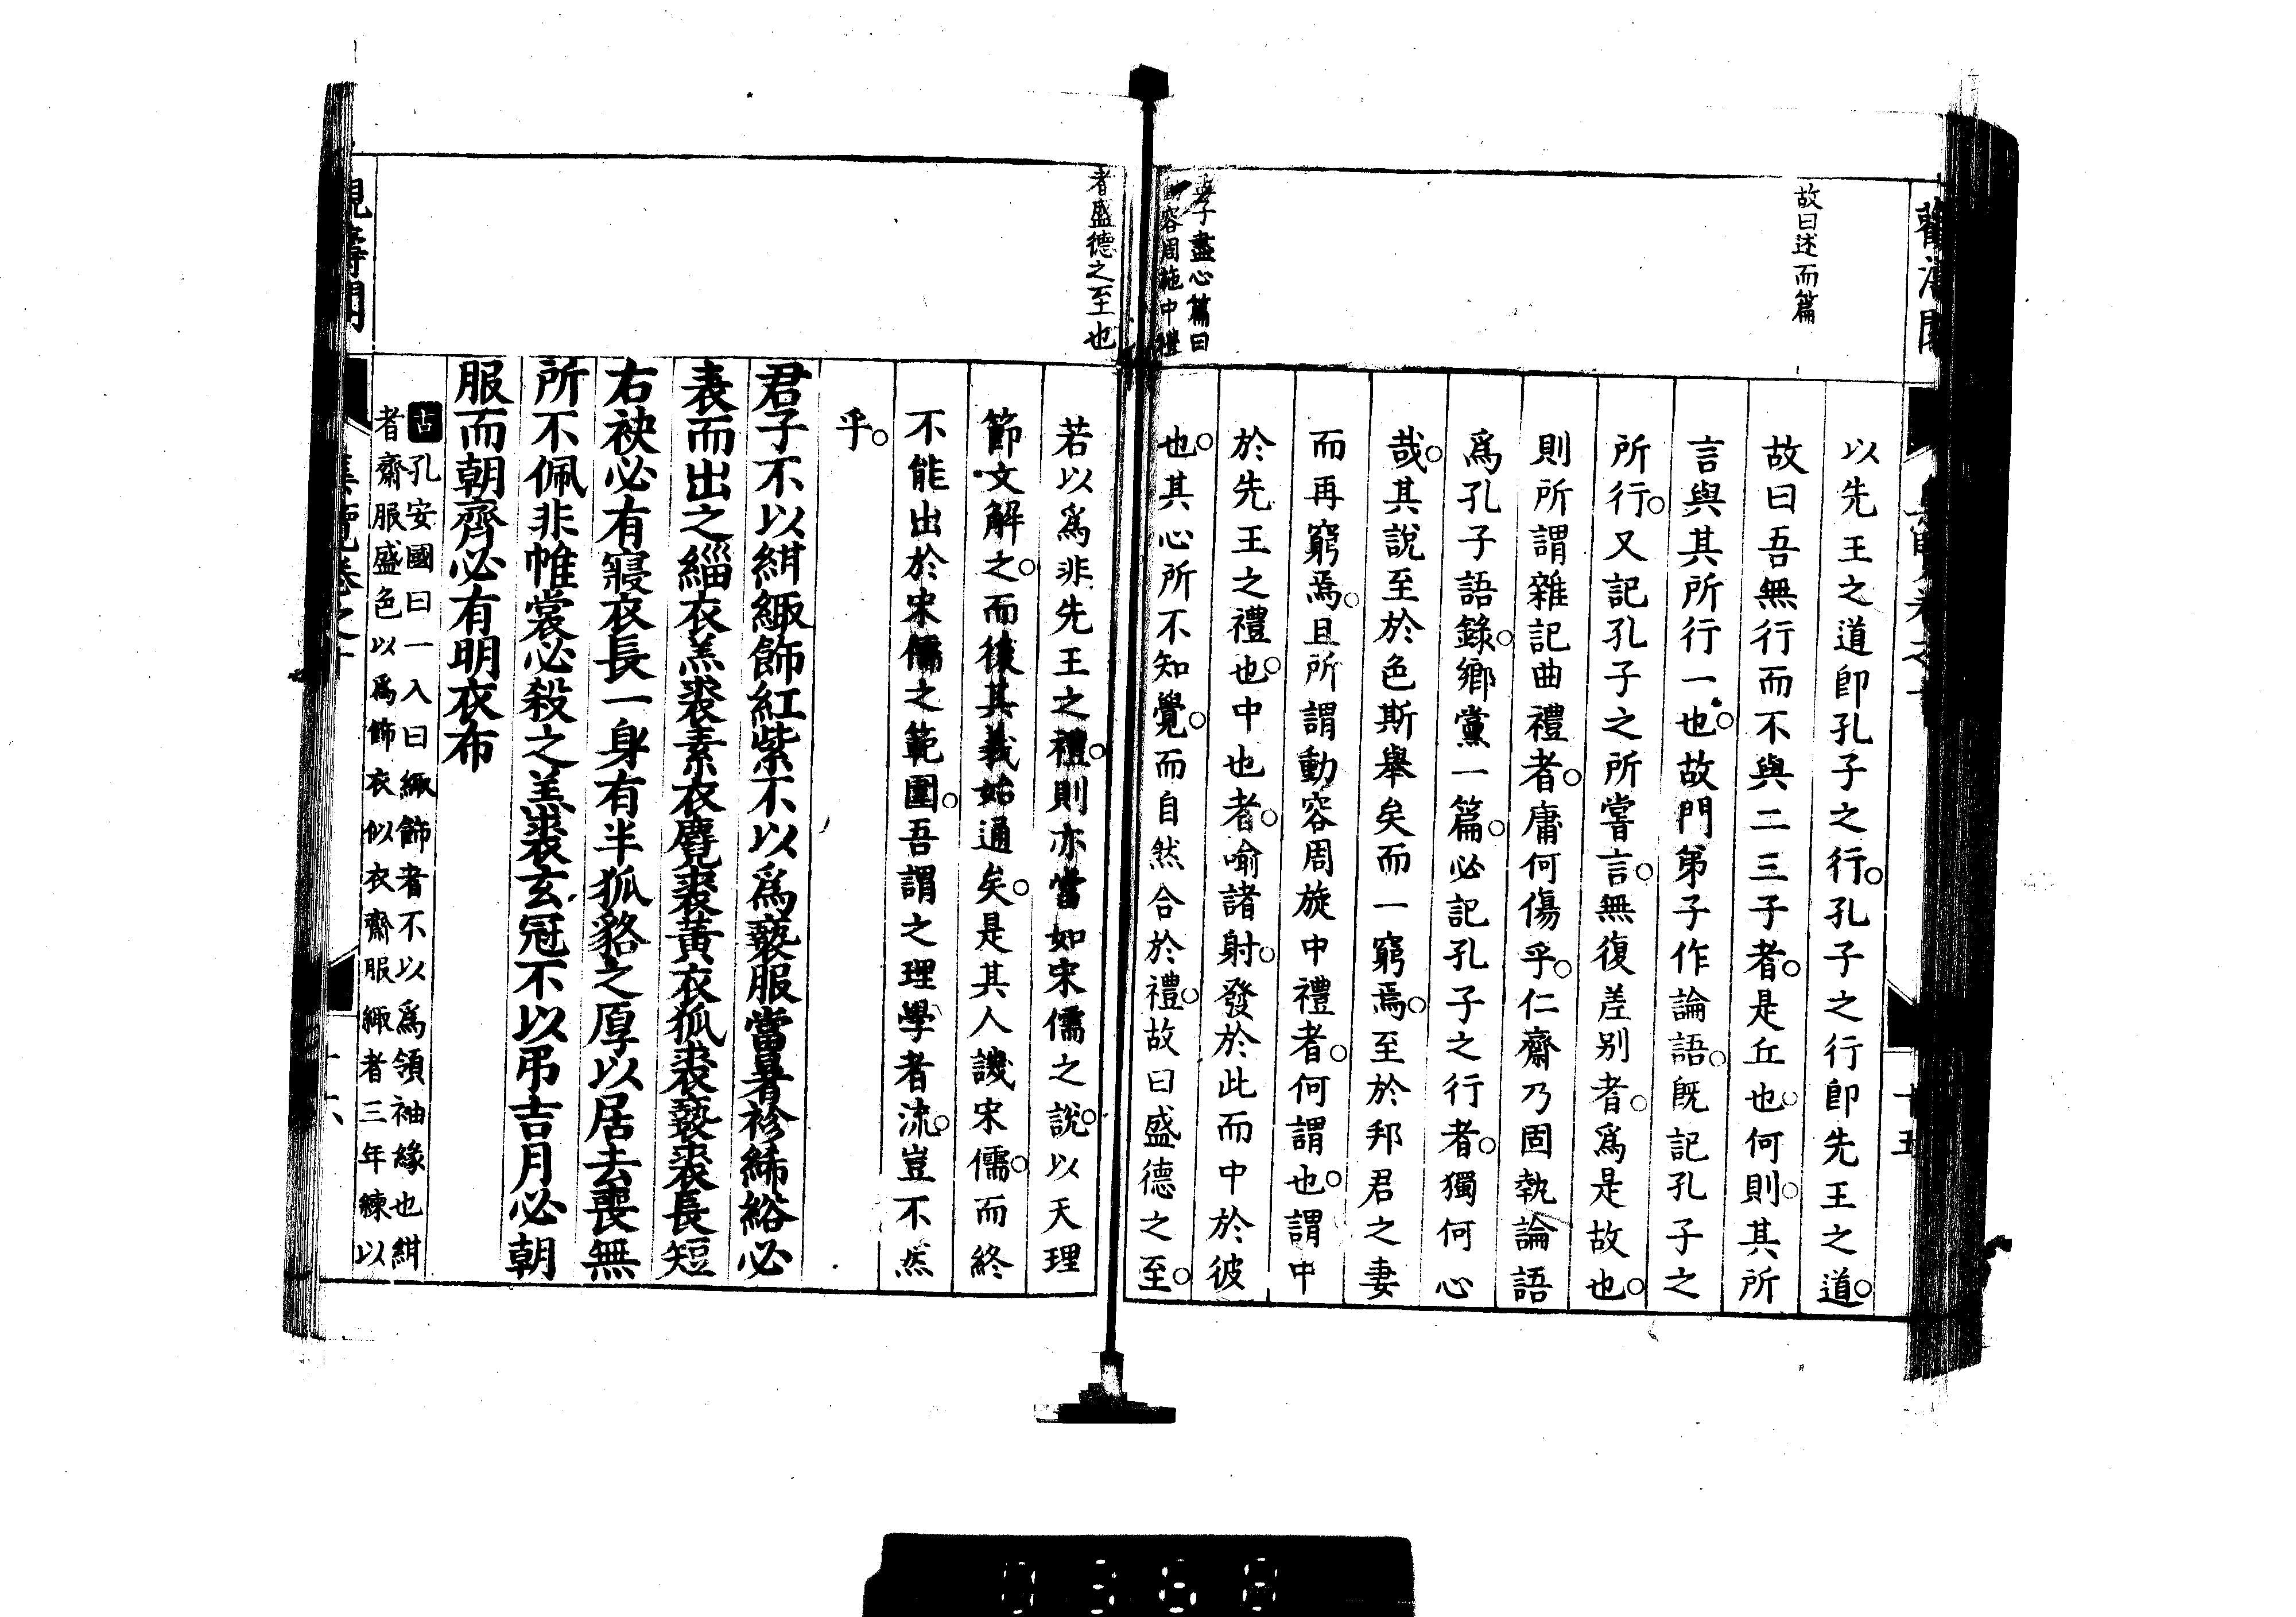 故曰述而篇
以先王之道卽孔子之行孔子之行卽先王之道
故曰吾無行而不與二三子者是丘也何則其所
言與其所行一也故門弟子作論語旣記孔子之
所行又記孔子之所嘗言無復差別者爲是故也
則所謂雜記曲禮者庸何傷乎仁齋乃固執論語
爲孔子語錄鄉黨一篇必記孔子之行者獨何心
哉其說至於色斯舉矣而一窮焉至於邦君之妻
而再窮焉且所謂動容周旋中禮者何謂也謂中
於先王之禮也中也者喻諸射發於此而中於彼
也其心所不知覺而自然合於禮故曰盛德之至
子盡心篇曰
容周旋中禮
者盛德之至也
若以爲非先王之禮則亦當如宋儒之說以天理
節文解之而後其義始通矣是其人譏宋儒而終
不能出於宋儒之範圍吾謂之理學者流豈不然
乎
君子不以紺緅飾紅紫不以爲褻服當暑袗絺綌必
表而出之緇衣羔裘素衣麑裘黃衣狐裘褻裘長短
右袂必有寢衣長一身有半狐貉之厚以居去喪無
所不佩非帷裳必殺之羔裘玄冠不以弔吉月必朝
服而朝齊必有明衣布
古孔安國曰一入曰緅飾者不以爲領袖緣也紺
者齋服盛色以爲飾衣似衣齋服緅者三年練以